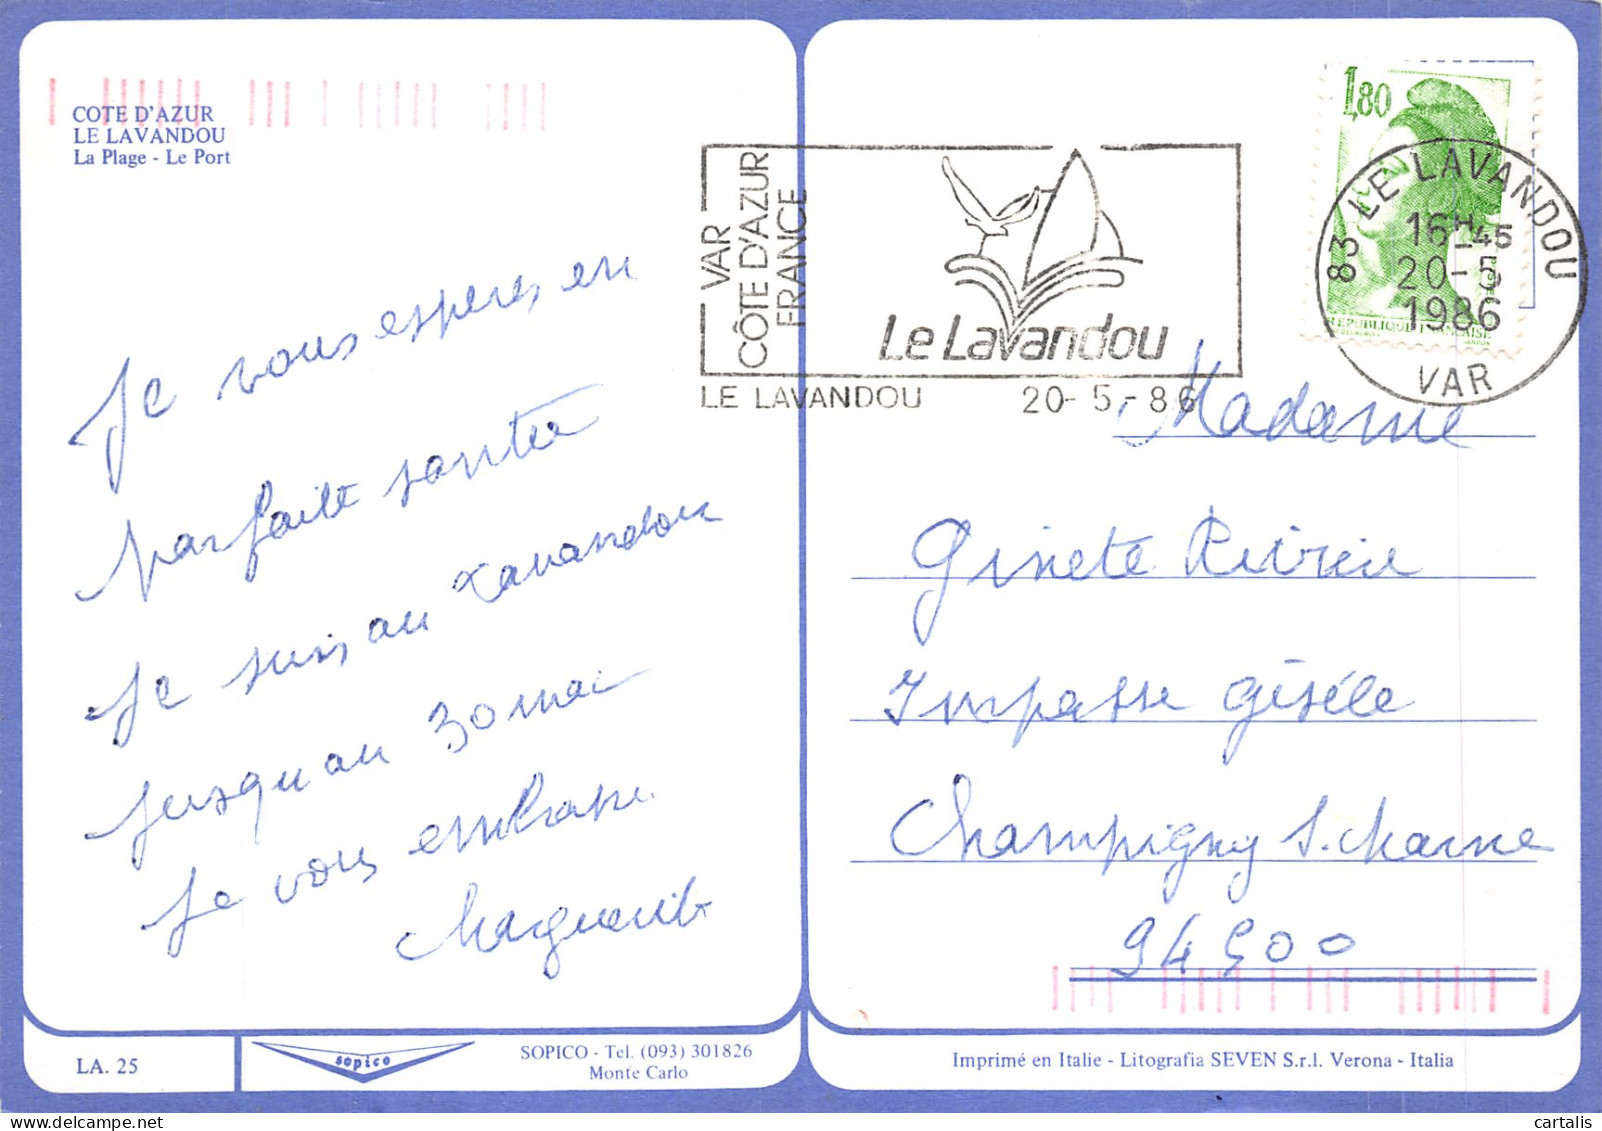 COTE D'AZUR
LE LAVANDOU
La Plage - Le Port
Je vous esperes en
parfaite santée
Je suis au Lavandou
jusquau 30 mai
Je vous embrasse
Marguerite
VAR
CÔTE D'AZUR
FRANCE
Le Lavandou
LE LAVANDOU 20-5-86
1,80
REPUBLIQUE FRANÇAISE
83 LE LAVANDOU
16H-45
20-5
1986
VAR
Madame
Ginete Rivière
Impasse Gisèle
Champigny S. Marne
94500
LA. 25
sopico
SOPICO - Tel. (093) 301826
Monte Carlo
Imprimé en Italie - Litografia SEVEN S.r.l. Verona - Italia
cartalis